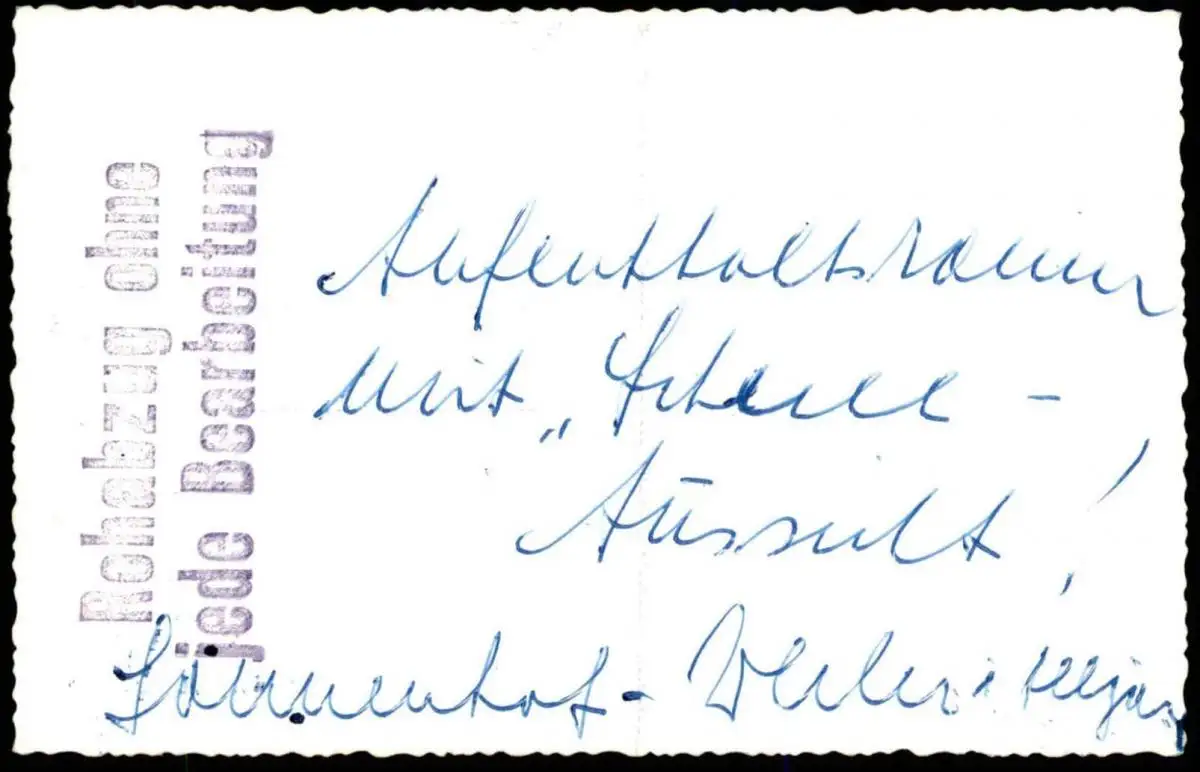 Rohabzug ohne
jede Bearbeitung
Aufenthaltsraum
mit „Schnee -
Aussicht !
Sonnenhof - Weiler i Allgäu